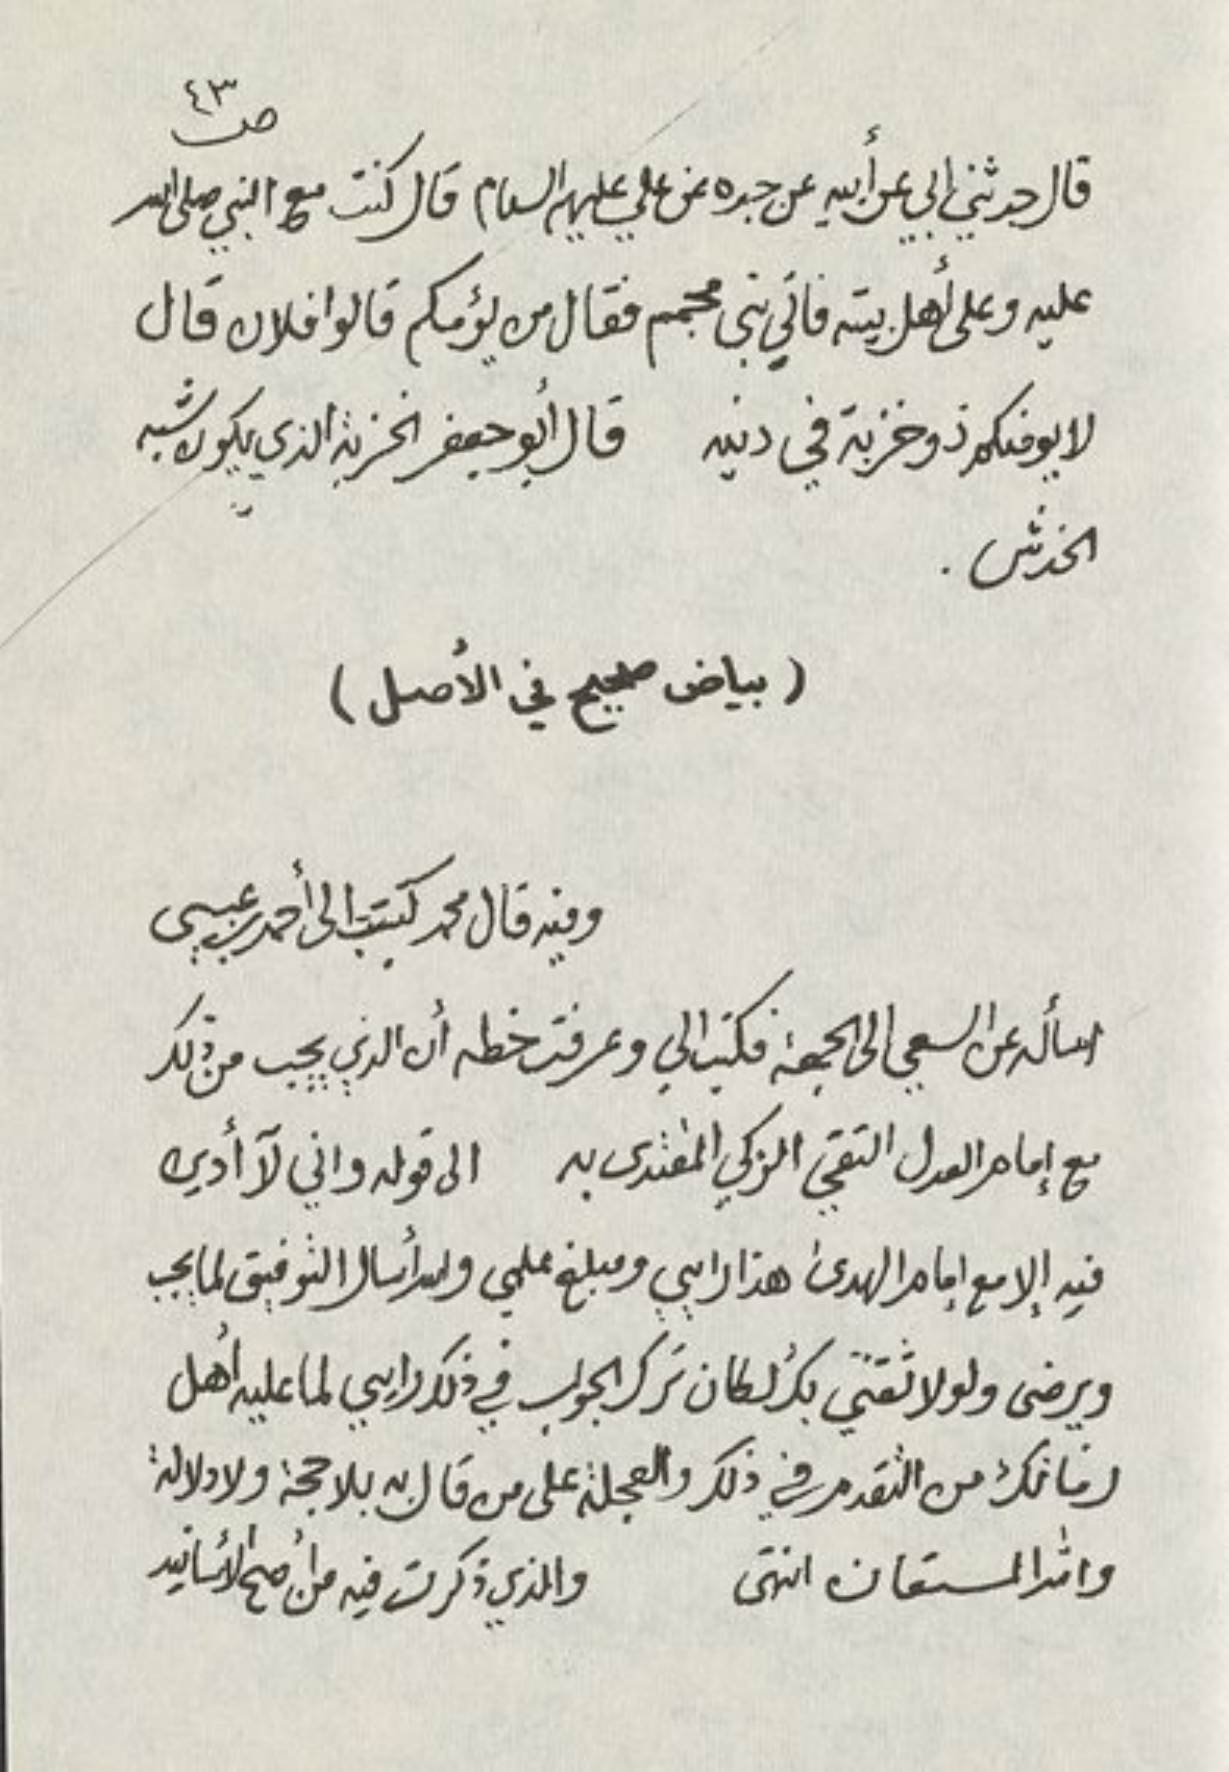 ص ٤٣
قال حدثني أبي عن أبيه عن جده عن علي عليهم السلام قال كنت مع النبي صلى الله
عليه وعلى أهل بيته فأتي بني محجم فقال من يؤمكم قالوا فلان قال
لا يؤمنكم ذو خزبة في دينه قال أبو جعفر الخزبة الذي يكون شبه
الخدش .
( بياض صحيح في الأصل )
وفيه قال محمد كتبت الى أحمد بن عيسى
اسأله عن السعي الى الجمعة فكتب الي وعرفت خطه أن الذي يجب من ذلك
مع إمام العدل التقي الزكي المقتدى به الى قوله واني لا أدين
فيه إلا مع إمام الهدى هذا رايي ومبلغ علمي والله أسأل التوفيق لما يحب
ويرضى ولولا ثقتي بك لكان ترك الجواب في ذلك رايي لما عليه أهل
زمانك من التقدم في ذلك والعجلة على من قال به بلا حجة ولا دلالة
والله المستعان انتهى والذي ذكرت فيه من أصح الأسانيد